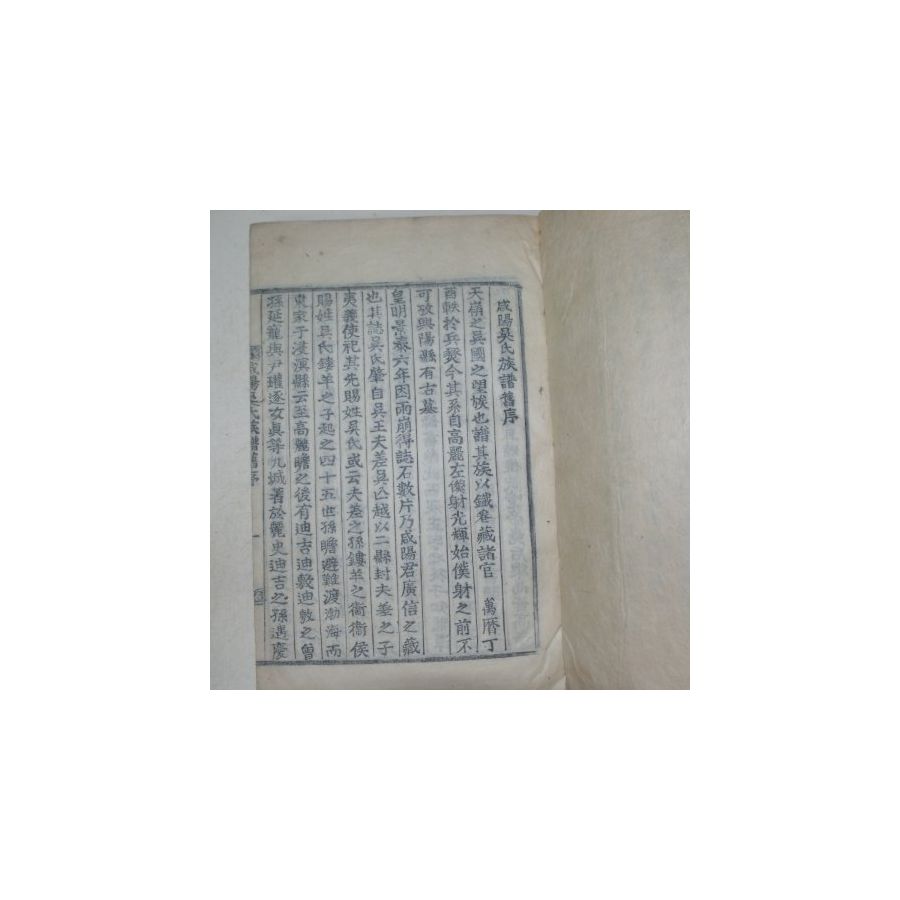 咸陽吳氏族譜舊序
天嶺之吳國之望族也譜其族以鐵卷藏諸官 萬曆丁
酉軼於兵燹今其系自高麗左僕射光輝始僕射之前不
可攷與陽縣有古墓
皇明景泰六年因雨崩得誌石數片乃咸陽君廣信之藏
也其誌吳氏肇自吳王夫差吳亡越以二縣封夫差之子
夷義使祀其先賜姓吳氏或云夫差之孫鏤羊之衛衛侯
賜姓吳氏鏤羊之子起之四十五世孫瞻避難渡渤海而
東家于浸溟縣云至高麗瞻之後有迪吉迪敷迪敦之曾
孫延寵與尹瓘逐女眞等九城著於麗史迪吉之孫遇慶
咸陽吳氏族譜舊序 一